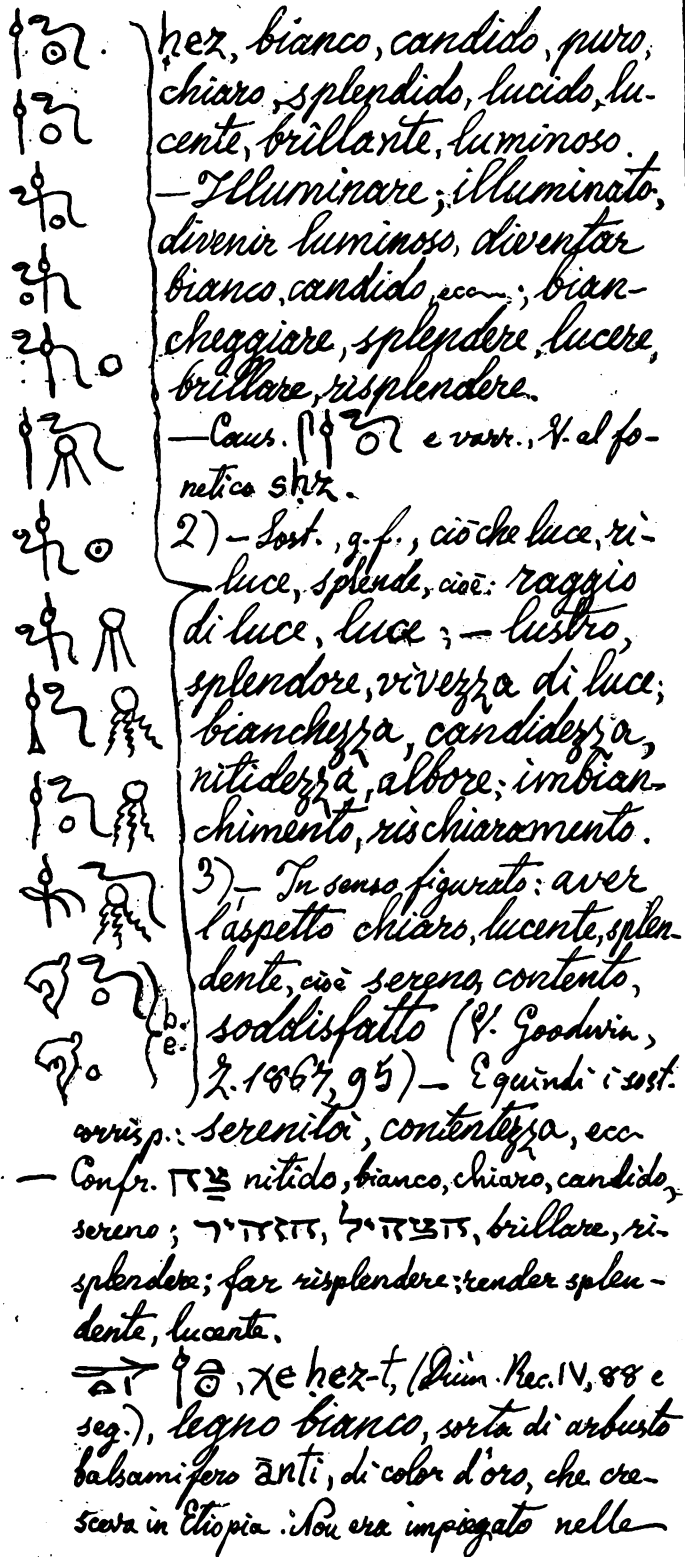 ḥez, bianco, candido, puro,
chiaro, splendido, lucido, lu-
cente, brillante, luminoso.
— Illuminare; illuminato,
divenir luminoso, diventar
bianco, candido, ecc.; bian-
cheggiare, splendere, lucere,
brillare, risplendere.
— Caus. e varr., V. al fo-
netico sḥz.
2) — Sost., g. f., ciò che luce, ri-
luce, splende, cioè: raggio
di luce, luce; — lustro,
splendore, vivezza di luce;
bianchezza, candidezza,
nitidezza, albore; imbian-
chimento, rischiaramento.
3) — In senso figurato: aver
l'aspetto chiaro, lucente, splen-
dente, cioè sereno, contento,
soddisfatto (V. Goodwin,
Z. 1867, 95) — E quindi i sost.
b.
e.
corrisp.: serenità, contentezza, ecc.
— Confr. צח nitido, bianco, chiaro, candido,
sereno; הצהיל, הזהיר, brillare, ri-
splendere; far risplendere; render splen-
dente, lucente.
χe ḥez-t, (Düm. Rec. IV, 88 e
seg.), legno bianco, sorta di arbusto
balsamifero ānti, di color d'oro, che cre-
sceva in Etiopia. Non era impiegato nelle